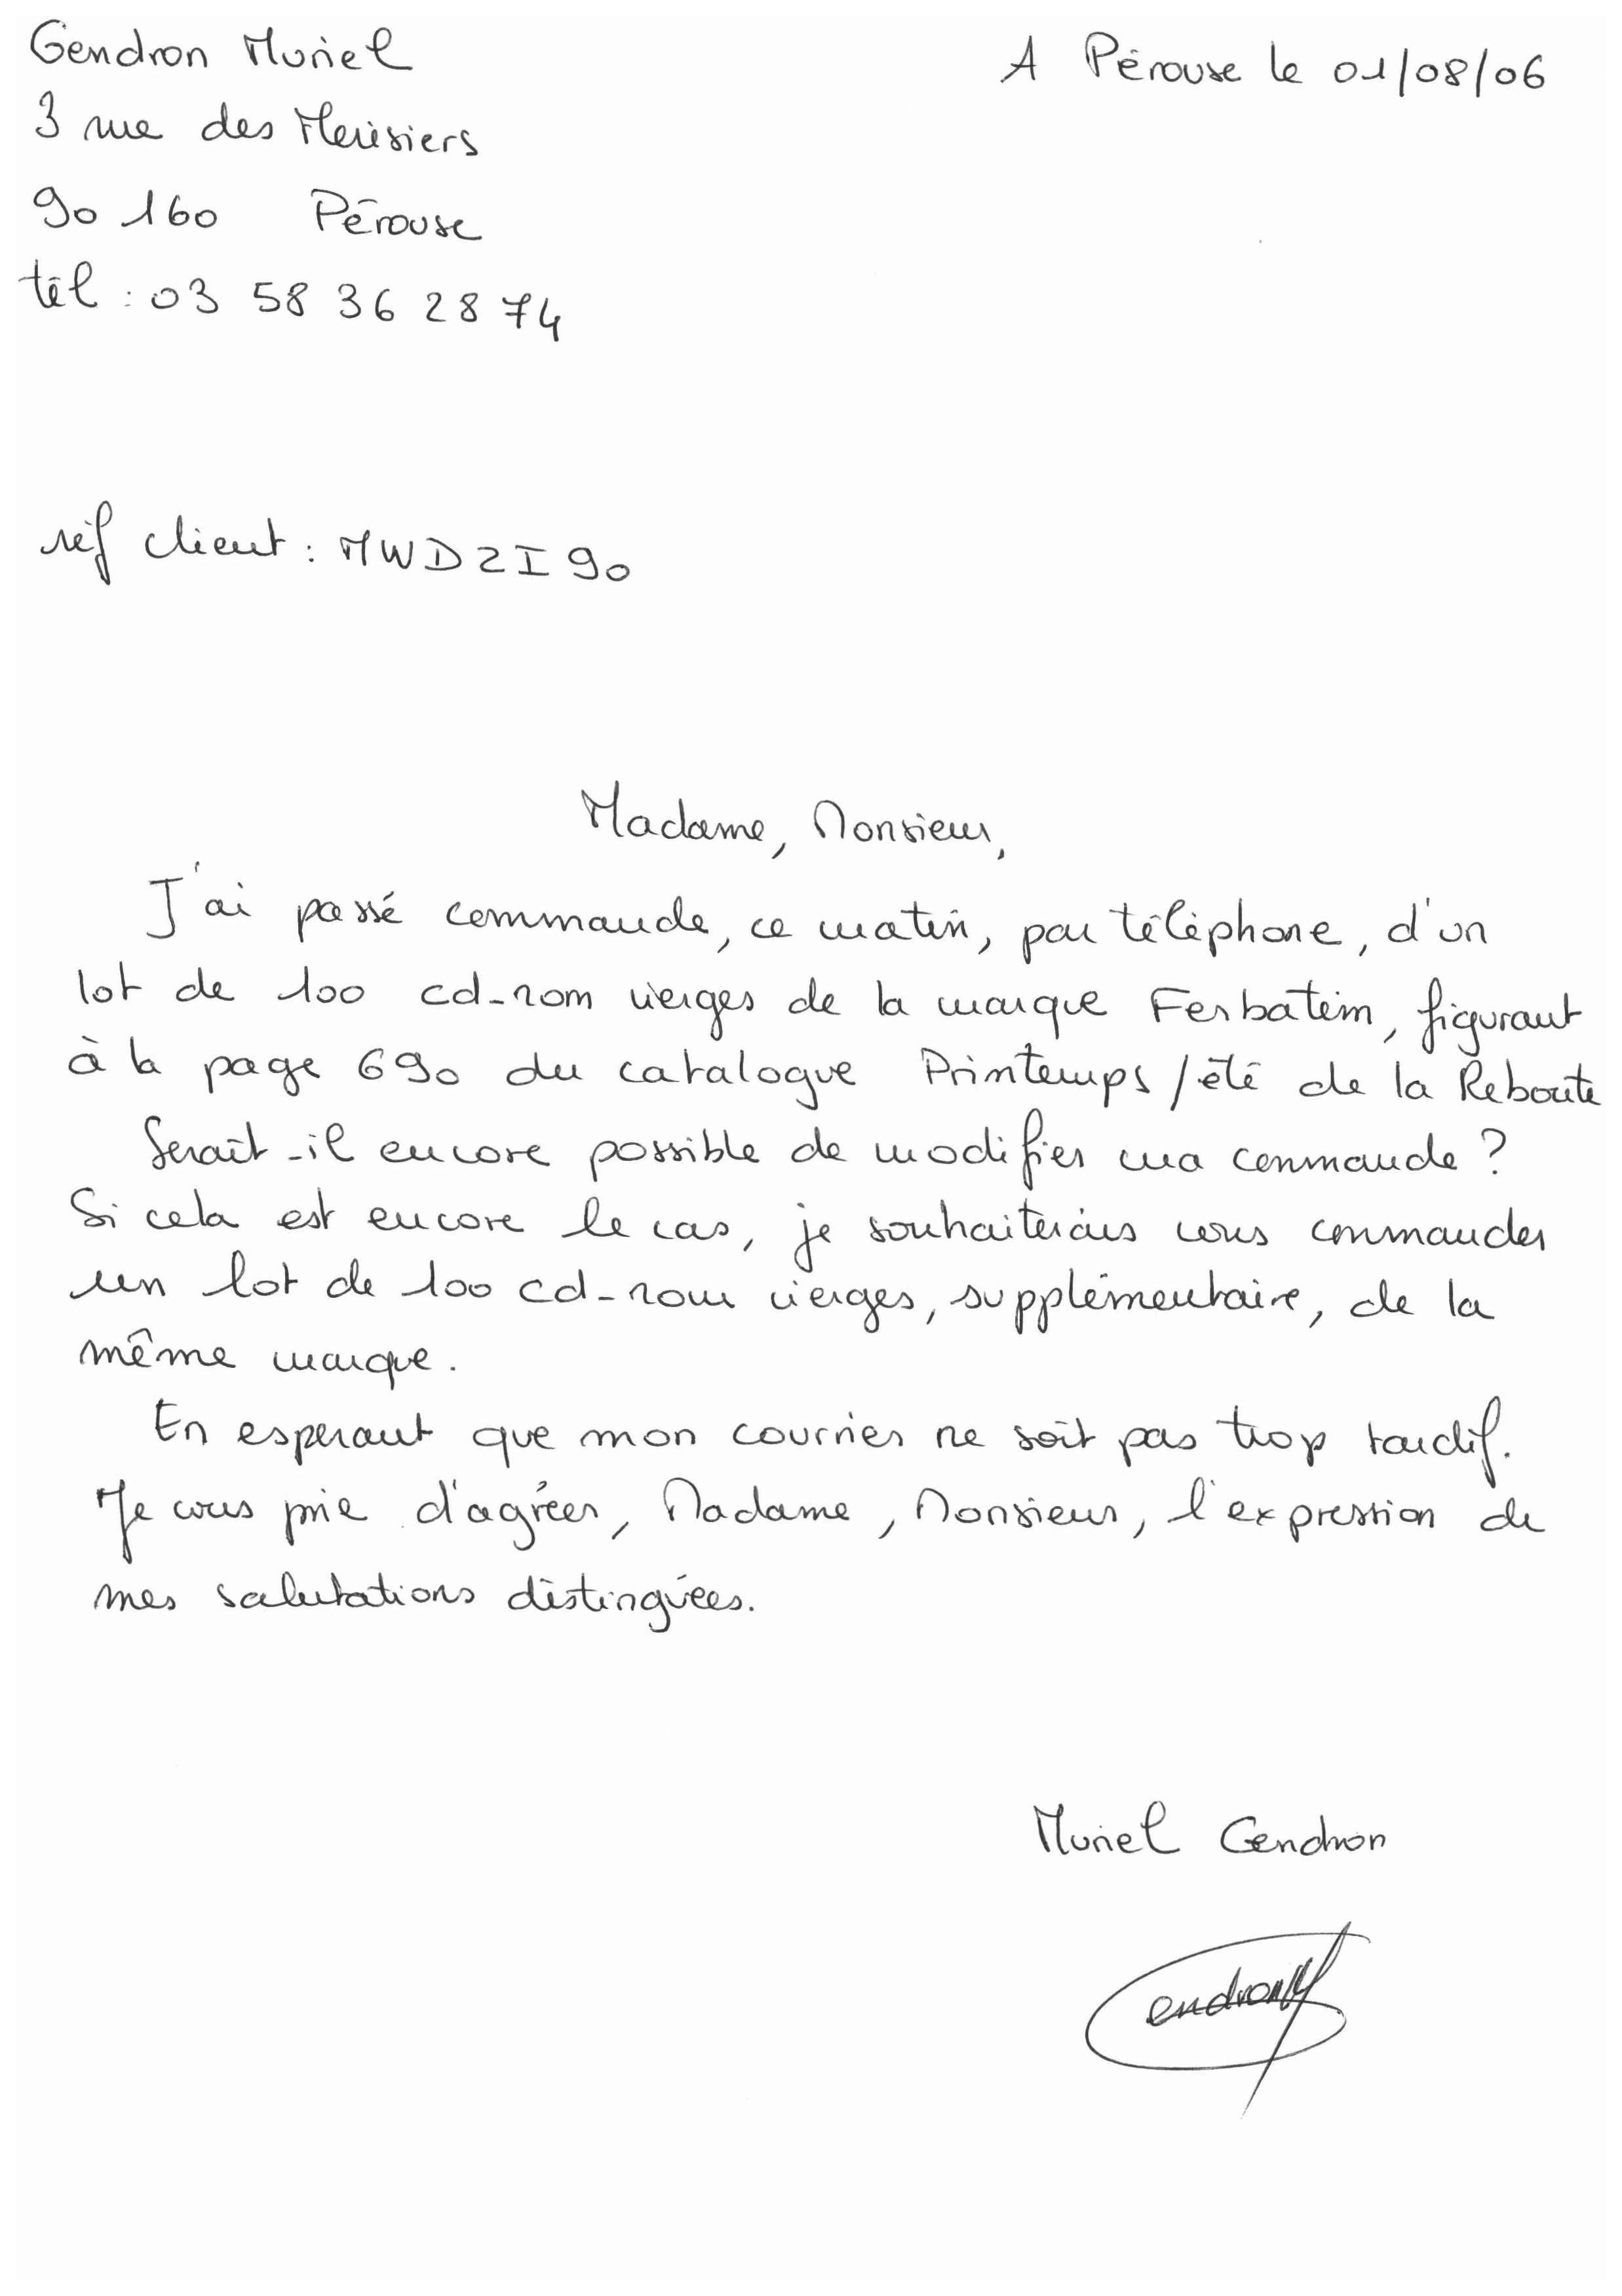 Gendron Muriel
A Pérouse le 01/08/06
3 rue des Merisiers
90 160 Pérouse
tél : 03 58 36 28 74
réf client : MWDZI90
Madame, Monsieur,
J'ai passé commande, ce matin, par téléphone, d'un
lot de 100 cd-rom vierges de la marque Ferbatim, figurant
à la page 690 du catalogue Printemps/été de la Reboute
Serait-il encore possible de modifier ma commande ?
Si cela est encore le cas, je souhaiterais vous commander
un lot de 100 cd-rom vierges, supplémentaire, de la
même marque.
En esperant que mon courrier ne soit pas trop tardif.
Je vous prie d'agréer, Madame, Monsieur, l'expression de
mes salutations distinguées.
Muriel Gendron
Gendron M